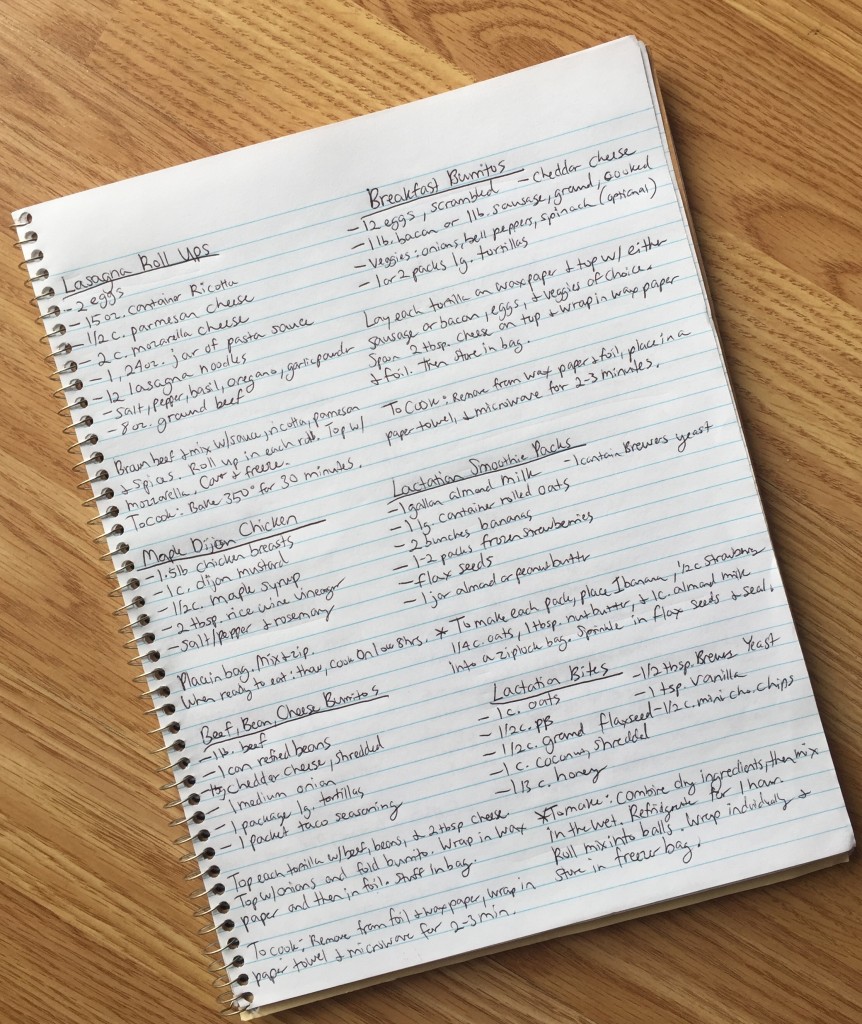 Lasagna Roll Ups
- 2 eggs
- 15 oz. container Ricotta
- 1/2 c. parmesan cheese
- 2 c. mozarella cheese
- 1, 24oz. jar of pasta sauce
- 12 lasagna noodles
- Salt, pepper, basil, oregano, garlic powder
- 8 oz. ground beef
Brown beef & mix w/ sauce, ricotta, parmesan
& spices. Roll up in each roll. Top w/
mozzarella. Cover & freeze.
To cook: Bake 350° for 30 minutes.
Maple Dijon Chicken
- 1.5lb chicken breasts
- 1 c. dijon mustard
- 1/2 c. maple syrup
- 2 tbsp. rice wine vinegar
- Salt/pepper & rosemary
Place in bag. Mix & zip.
When ready to eat: thaw, cook on low 8 hrs.
Beef, Bean, Cheese Burritos
- 1lb. beef
- 1 can refied beans
- cheddar cheese, shredded
- 1 medium onion
- 1 package lg. tortillas
- 1 packet taco seasoning
Top each tortilla w/ beef, beans, & 2 tbsp cheese.
Top w/ onions and fold burrito. Wrap in wax
paper and then in foil. Stuff in bag.
To cook: Remove from foil & wax paper, wrap in
paper towel & microwave for 2-3 min.
Breakfast Burritos
- 12 eggs, scrambled - cheddar cheese
- 1 lb. bacon or 1 lb. sausage, ground, cooked
- Veggies: onions, bell peppers, spinach (optional)
- 1 or 2 packs lg. tortillas
Lay each tortilla on wax paper & top w/ either
sausage or bacon, eggs, & veggies of choice.
Spoon 2 tbsp. cheese on top & wrap in wax paper
& foil. Then store in bag.
To Cook: Remove from wax paper & foil, place in a
paper towel, & microwave for 2-3 minutes.
Lactation Smoothie Packs
- 1 gallon almond milk - 1 contain Brewers yeast
- 1 lg. container rolled oats
- 2 bunches bananas
- 1-2 packs frozen strawberries
- flax seeds
- 1 jar almond or peanut butter
* To make each pack, place 1 banana, 1/2 c strawberries
1/4 c. oats, 1 tbsp. nut butter, & 1 c. almond milk
into a ziplock bag. Sprinkle in flax seeds & seal.
Lactation Bites
- 1 c. oats - 1/2 tbsp. Brewers Yeast
- 1/2 c. PB - 1 tsp. vanilla
- 1/2 c. ground flaxseed - 1/2 c. mini cho. chips
- 1 c. coconut, shredded
- 1/3 c. honey
* To make: Combine dry ingredients, then mix
in the wet. Refridgerate for 1 hour.
Roll mix into balls. Wrap individually &
store in freezer bag.